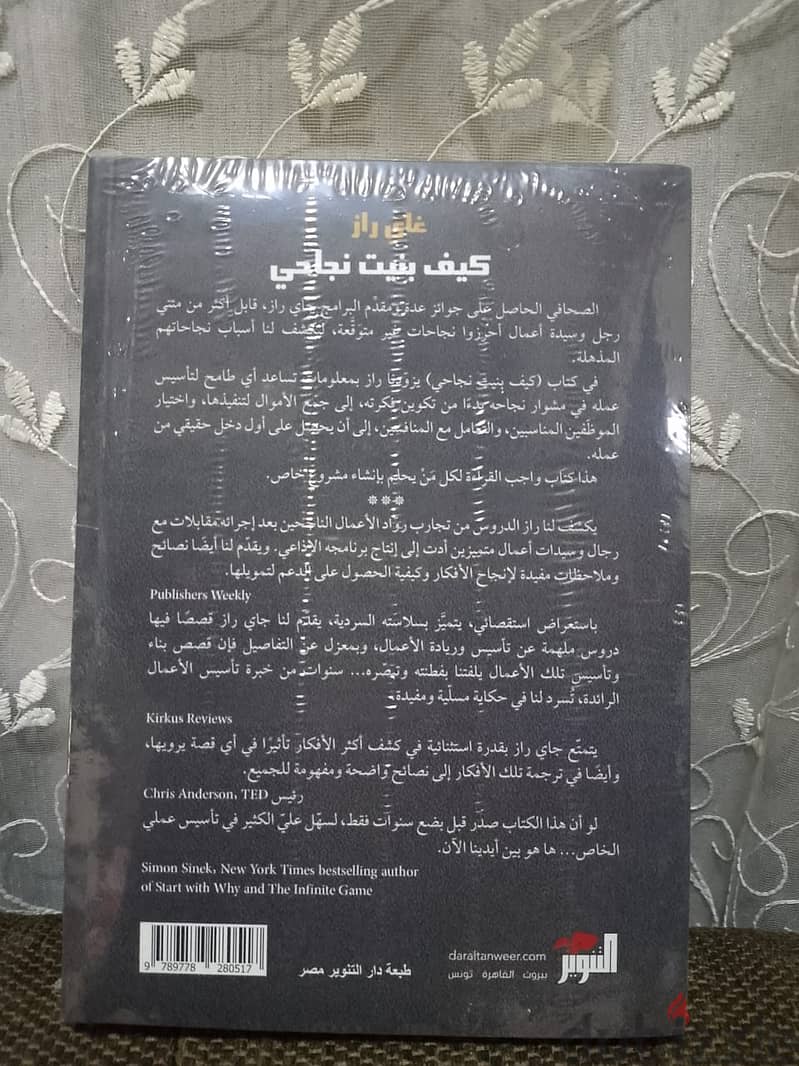 غاي راز
كيف بنيت نجاحي
الصحافي الحاصل على جوائز عدة ومقدّم البرامج جاي راز، قابل أكثر من مئتي
رجل وسيدة أعمال أحرزوا نجاحات غير متوقَّعة، لتكشف لنا أسباب نجاحاتهم
المذهلة.
في كتاب (كيف بنيت نجاحي) يزودنا راز بمعلومات تساعد أي طامح لتأسيس
عمله في مشوار نجاحه بدءًا من تكوين فكرته، إلى جمع الأموال لتنفيذها، واختيار
الموظفين المناسبين، والتعامل مع المنافسين، إلى أن يحصل على أول دخل حقيقي من
عمله.
هذا كتاب واجب القراءة لكل مَنْ يحلم بإنشاء مشروع خاص.
***
يكشف لنا راز الدروس من تجارب روّاد الأعمال الناجحين بعد إجرائه مقابلات مع
رجال وسيدات أعمال متميزين أدت إلى إنتاج برنامجه الإذاعي. ويقدّم لنا أيضًا نصائح
وملاحظات مفيدة لإنجاح الأفكار وكيفية الحصول على الدعم لتمويلها.
Publishers Weekly
باستعراض استقصائي، يتميَّز بسلاسته السردية، يقدّم لنا جاي راز قصصًا فيها
دروس ملهمة عن تأسيس وريادة الأعمال، وبمعزل عن التفاصيل فإن قصص بناء
وتأسيس تلك الأعمال يلفتنا بفطنته وتبصّره... سنوات من خبرة تأسيس الأعمال
الرائدة، تُسرد لنا في حكاية مسلّية ومفيدة.
Kirkus Reviews
يتمتّع جاي راز بقدرة استثنائية في كشف أكثر الأفكار تأثيرًا في أي قصة يرويها،
وأيضًا في ترجمة تلك الأفكار إلى نصائح واضحة ومفهومة للجميع.
Chris Anderson، TED رئيس
لو أن هذا الكتاب صدر قبل بضع سنوات فقط، لسهّل عليّ الكثير في تأسيس عملي
الخاص... ها هو بين أيدينا الآن.
Simon Sinek، New York Times bestselling author
of Start with Why and The Infinite Game
9 789778 280517
طبعة دار التنوير مصر
daraltanweer.com
بيروت القاهرة تونس
التنوير